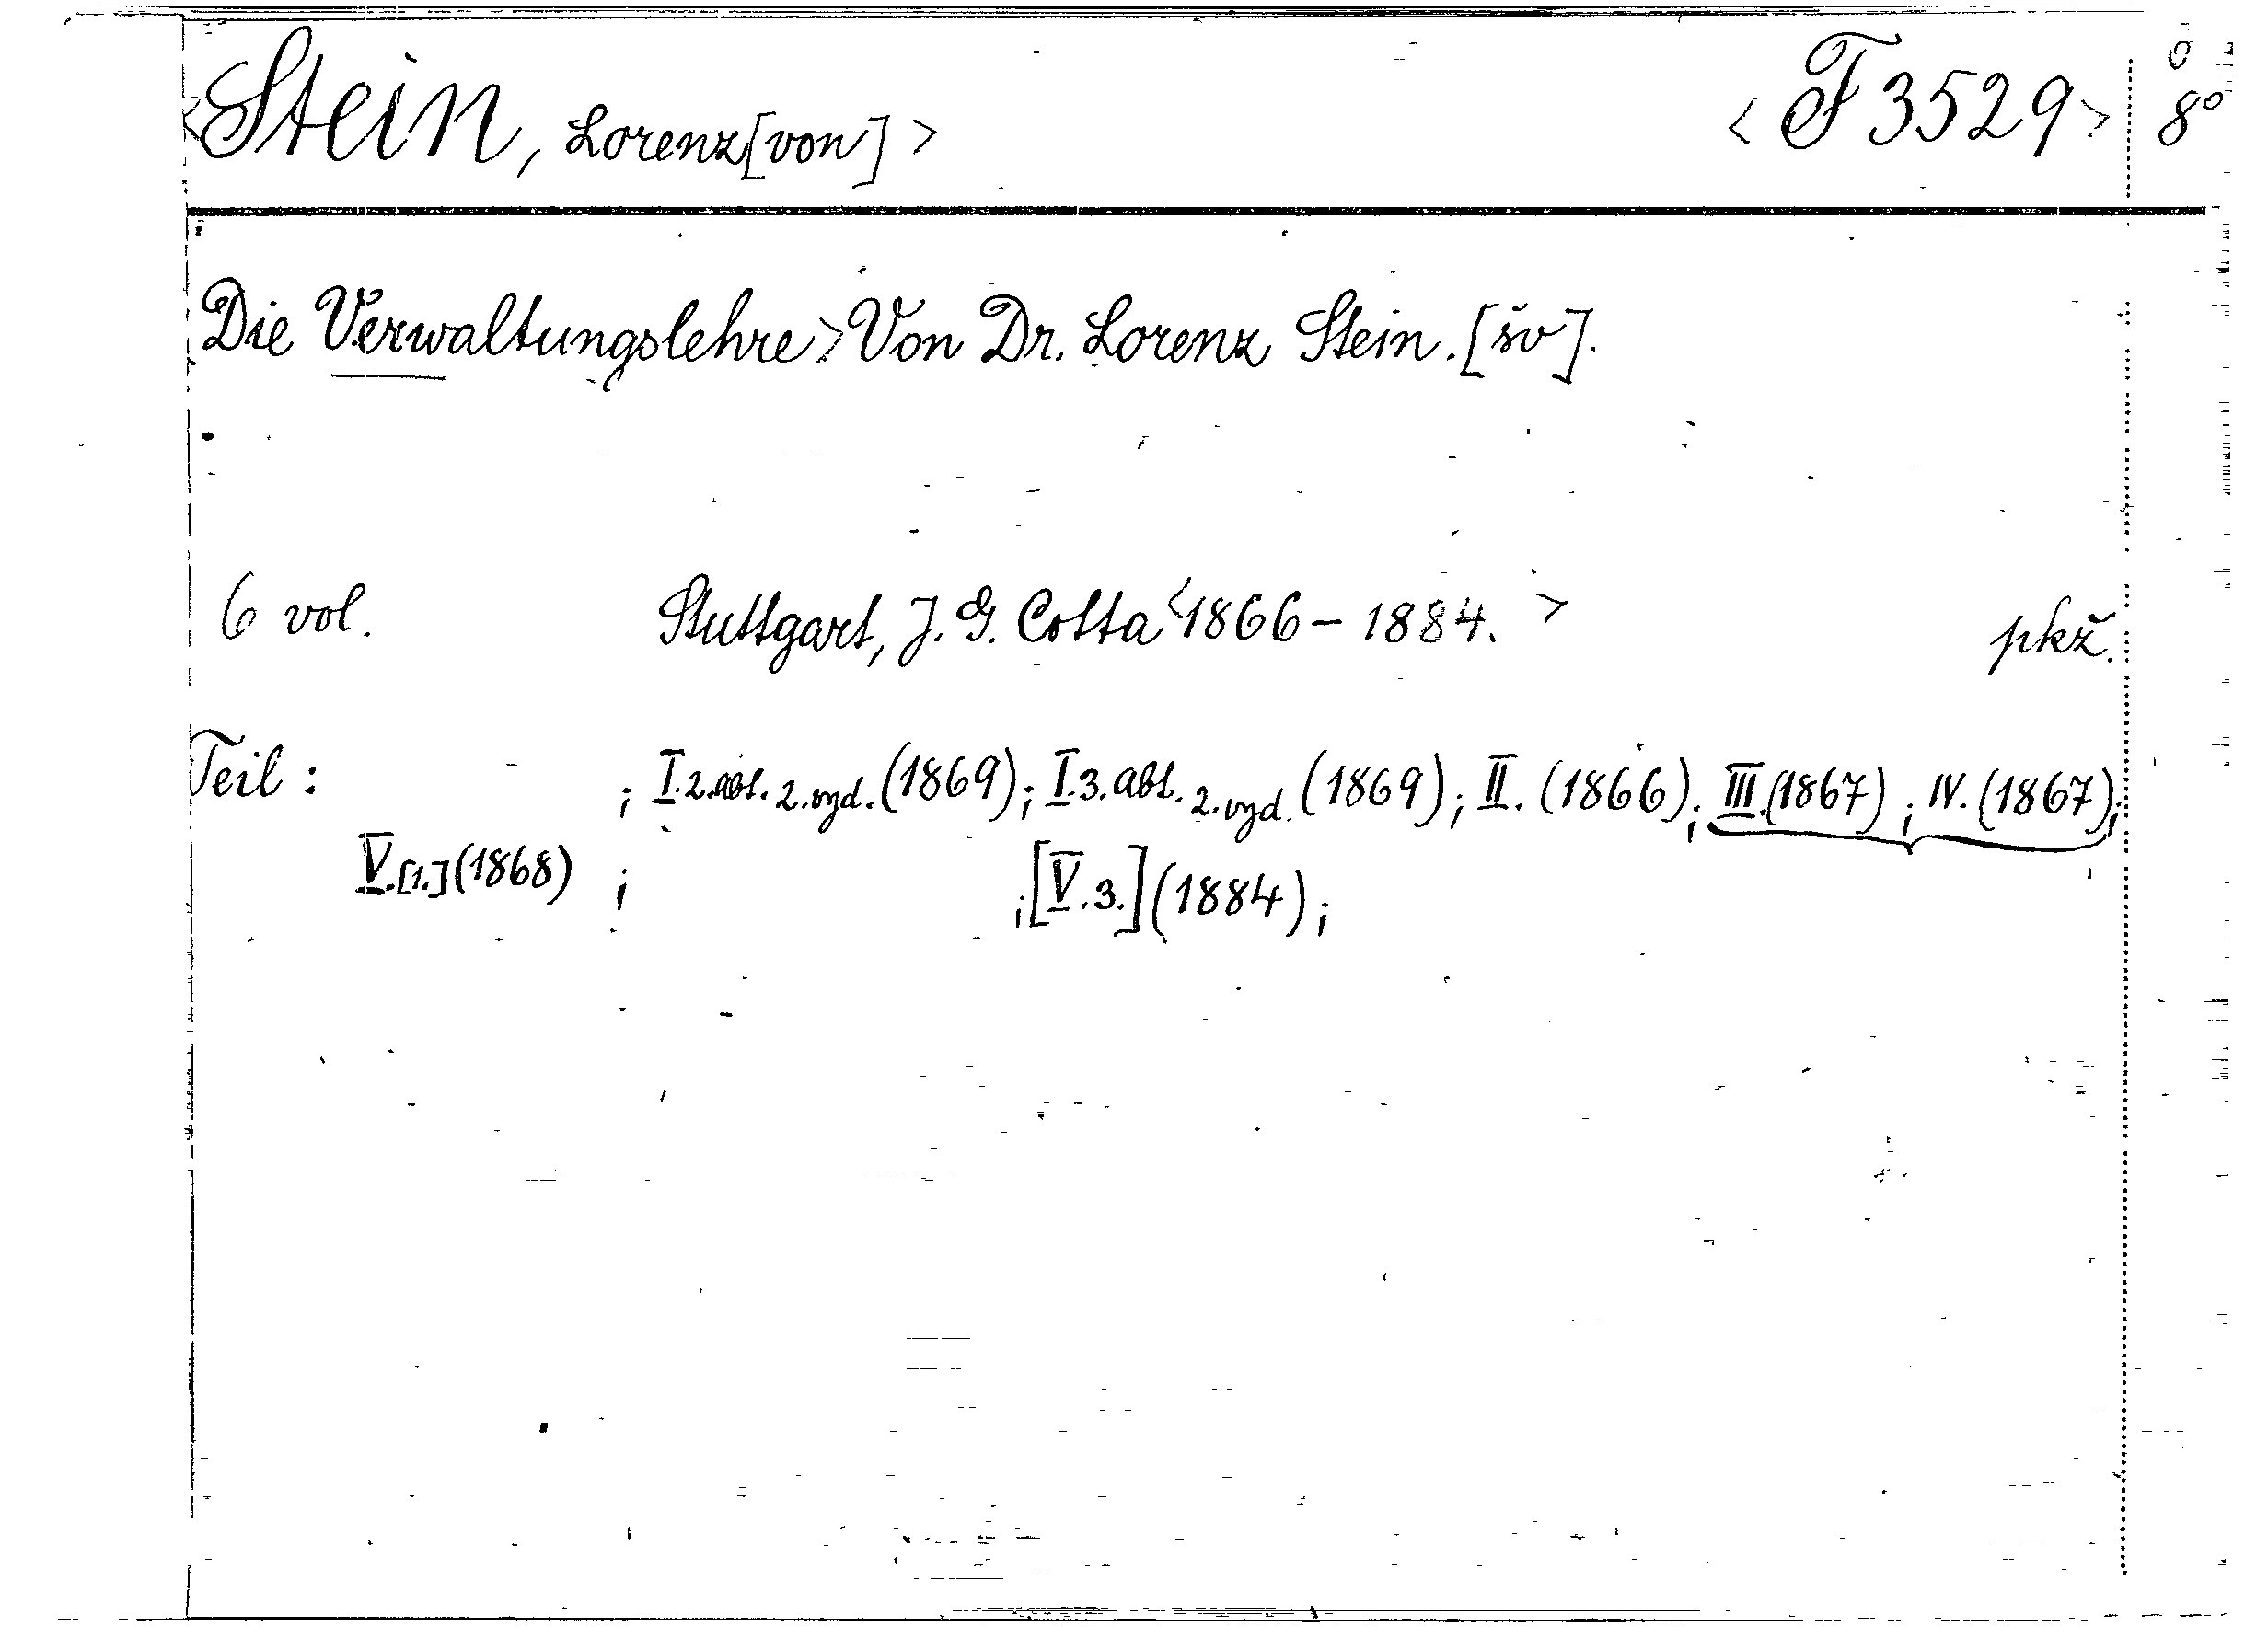 <Stein, Lorenz[von]> <F 3529> 8°
Die Verwaltungslehre> Von Dr. Lorenz Stein. [šv].
6 vol. Stuttgart, J. G. Cotta <1866-1884.> pkž.
Teil: ; I. 2. abt. 2. vyd. (1869); I. 3. abt. 2. vyd. (1869); II. (1866); III. (1867); IV. (1867);
V. [1.] (1868) ; ; [V. 3.] (1884);